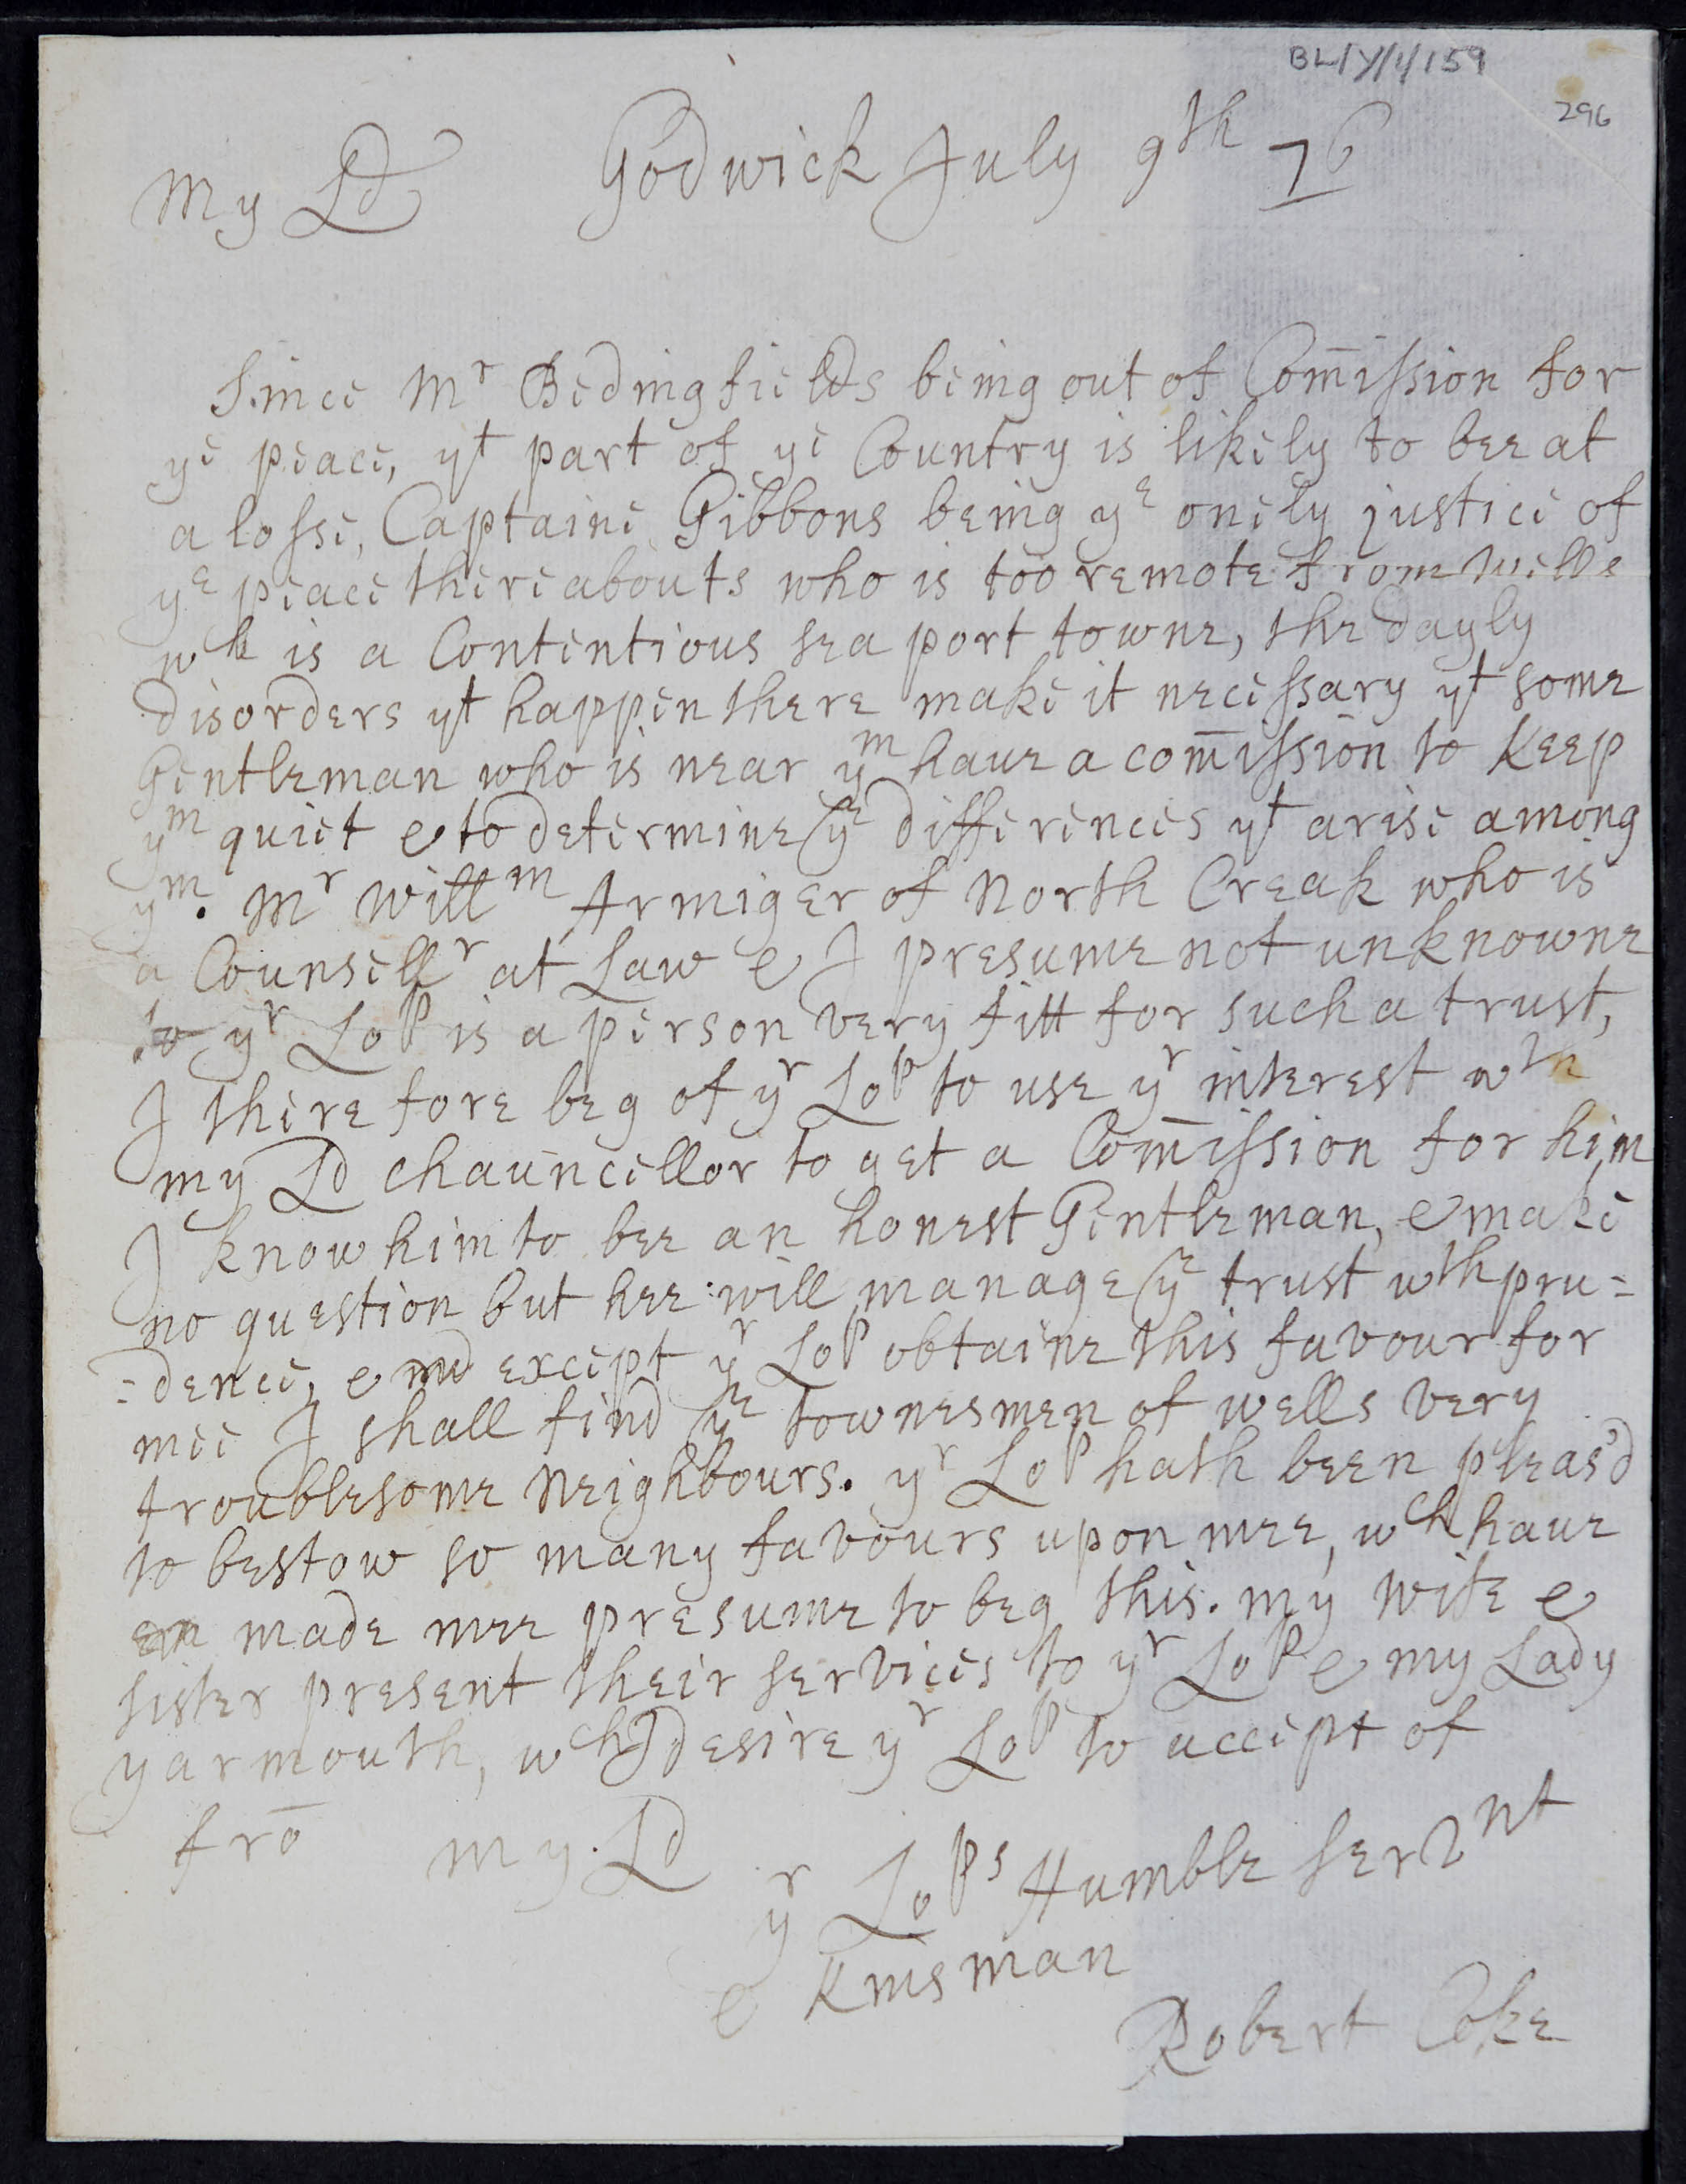 BL/Y/1/159
296
My Ld Godwick July 9th 76
Since Mr Bedingfields being out of Com̄ission for
ye peace, yt part of ye Country is likely to bee at
a losse, Captaine Gibbons being ye onely justice of
ye peace thereabouts who is too remote from Wells
wch is a Contentious sea port towne, the dayly
disorders yt happen there make it necessary yt some
Gentleman who is near ym have a com̄ission to keep
ym quiet & to determine ye differences yt arise among
ym. Mr Willm Armiger of North Creak who is
a Counsellr at Law & I presume not unknowne
to yr Lopp is a person very fitt for such a trust,
I therefore beg of yr Lopp to use yr interest wth
my Ld chauncellor to get a Com̄ission for him
I know him to bee an honest Gentleman, & make
no question but hee will manage ye trust wth pru=
=dence, & except yr Lopp obtaine this favour for
mee I shall find ye townesmen of wells very
troublesome Neighbours. yr Lopp hath been pleas'd
to bestow so many favours upon mee, wch have
made mee presume to beg this. my Wife &
sister present their services to yr Lopp & my Lady
yarmouth, wch I desire yr Lopp to accept of
frō my Ld
yr Lopps Humble servnt
& Kinsman
Robert Coke